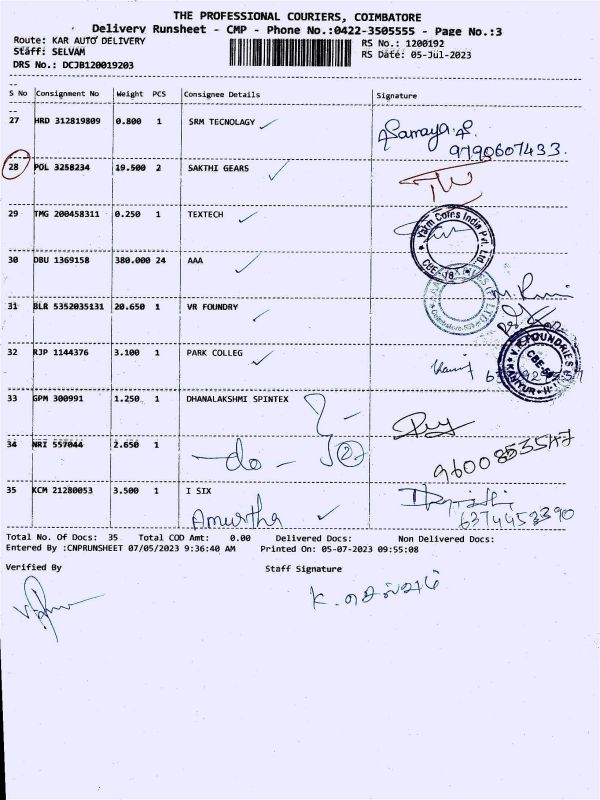 THE PROFESSIONAL COURIERS, COIMBATORE
Delivery Runsheet - CMP - Phone No.:0422-3505555 - Page No.:3
Route: KAR AUTO DELIVERY
RS No.: 1200192
Staff: SELVAM
RS Date: 05-Jul-2023
DRS No.: DCJB120019203
S No Consignment No Weight PCS Consignee Details Signature
27 HRD 312819809 0.800 1 SRM TECNOLAGY
9790607433.
28 POL 3258234 19.500 2 SAKTHI GEARS
29 TMG 200458311 0.250 1 TEXTECH
Yakm Coins India Pvt. Ltd.
CBE-18
30 DBU 1369158 380.000 24 AAA
31 BLR 5352035131 20.650 1 VR FOUNDRY
32 RJP 1144376 3.100 1 PARK COLLEG
33 GPM 300991 1.250 1 DHANALAKSHMI SPINTEX
34 NRI 557044 2.650 1 -do-
9600853547
35 KCM 21280053 3.500 1 I SIX
Amurtha
6374453390
Total No. Of Docs: 35 Total COD Amt: 0.00 Delivered Docs: Non Delivered Docs:
Entered By :CNPRUNSHEET 07/05/2023 9:36:40 AM Printed On: 05-07-2023 09:55:08
Verified By Staff Signature
K. செல்வம்